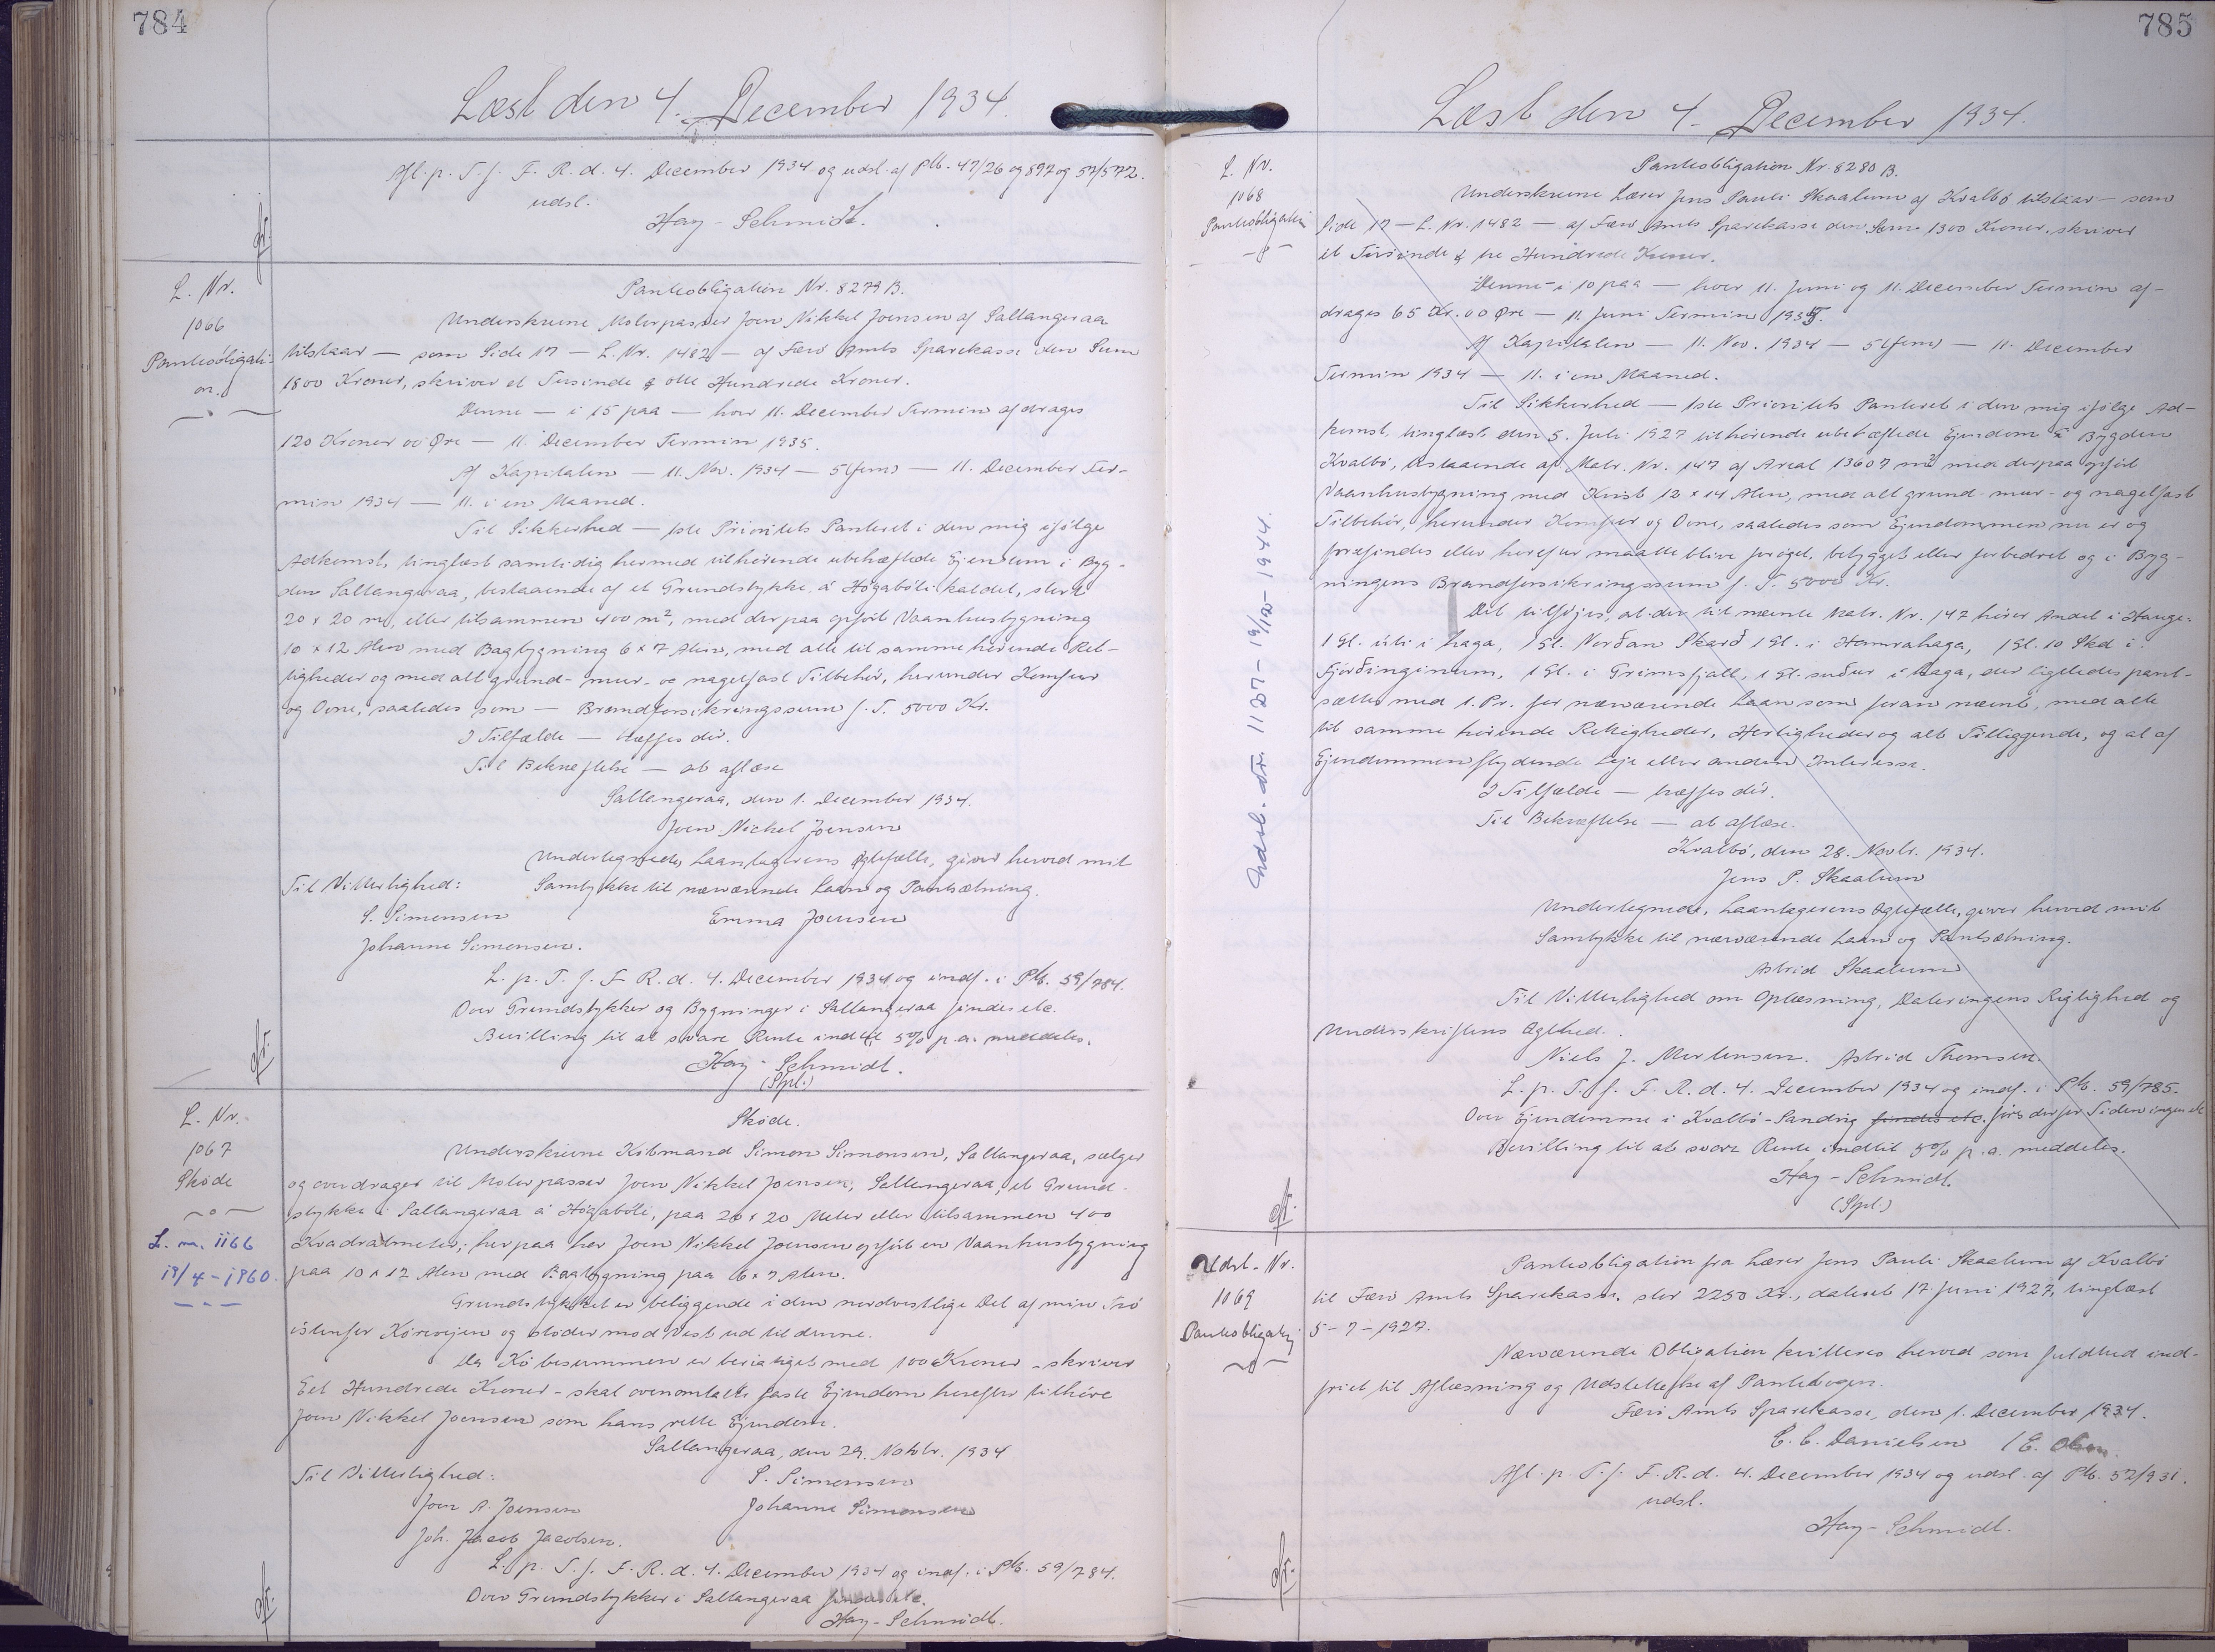 784
Læst den 4. December 1934.
Afl. p. T. f. F. R. d. 4. December 1934 og udsl. af Ptb. 47/26 og 892 og 57/572.
udsl.
Hay-Schmidt.
L. Nr.
1066
Panteobligati-
on.
Panteobligation Nr. 8279 B.
Underskrevne Molerpasser Joen Nikkel Joensen af Saltangeraa
tilstaar — som Side 17 — L. Nr. 1482 — af Færø Amts Sparekasse den Sum
1800 Kroner, skriver et Tusinde & otte Hundrede Kroner.
Denne — i 15 paa — hver 11. December Termin afdrages
120 Kroner 00 Øre — 11. December Termin 1935.
Af Kapitalen — 11. Nov. 1934 — 5 (fem) — 11. December Ter-
min 1934 — 11. i en Maaned.
Til Sikkerhed — 1ste Prioritets Panteret i den mig ifølge
Adkomst, tinglæst samtidig hermed tilhørende ubehæftede Ejendom i Byg-
den Saltangeraa, bestaaende af et Grundstykke, á Høgabóli kaldet, stort
20 x 20 m, eller tilsammen 400 m², med derpaa opført Vaanhusbygning
10 x 12 Alen med Bagbygning 6 x 7 Alen, med alle til samme hørende Ret-
tigheder og med alt grund- mur- og nagelfast Tilbehør, herunder Komfur
og Ovne, saaledes som — Brandforsikringssum f. T. 5000 Kr.
I Tilfælde — træffes dér.
Til Bekræftelse — at aflæse
Saltangeraa, den 1. December 1934.
Joen Nickel Joensen
Undertegnede, Laantagerens Ægtefælle, giver herved mit
Til Vitterlighed: Samtykke til nærværende Laan og Pantsætning.
S. Simonsen Emma Joensen
Johanne Simonsen.
L. p. T. f. F. R. d. 4. December 1934 og indf. i Ptb. 59/784.
Over Grundstykker og Bygninger i Saltangeraa findes etc.
Bevilling til at svare Rente indtil 5% p. a. meddeles.
Hay-Schmidt.
(Spl.)
L. Nr.
1067
Skøde
L. nr. 1166
19/4-1960.
Skøde.
Underskrevne Købmand Simon Simonsen, Saltangeraa, sælger
og overdrager til Molerpasser Joen Nikkel Joensen, Saltangeraa, et Grund-
stykke i Saltangeraa á Høgabóli, paa 20 x 20 Meter eller tilsammen 400
Kvadratmeter; herpaa har Joen Nikkel Joensen opført en Vaanhusbygning
paa 10 x 12 Alen med Bagbygning paa 6 x 7 Alen.
Grundstykket er beliggende i den nordvestlige Del af min Trø
østenfor Kørevejen og støder mod Vest ud til denne.
Da Købesummen er berigtiget med 100 Kroner - skriver
Eet Hundrede Kroner - skal ovenomtalte faste Ejendom herefter tilhøre
Joen Nikkel Joensen som hans rette Ejendom.
Saltangeraa, den 29. Novbr. 1934
Til Vitterlighed: S. Simonsen
Joen A. Joensen Johanne Simonsen
Joh. Jacob Jacobsen.
L. p. T. f. F. R. d. 4. December 1934 og indf. i Ptb. 59/784.
Over Grundstykker i Saltangeraa findes etc.
Hay-Schmidt.
785
Læst den 4. December 1934.
L. Nr.
1068
Panteobligation
Panteobligation Nr. 8280 B.
Underskrevne Lærer Jens Pauli Skaalum af Kvalbø tilstaar — som
Side 17 — L. Nr. 1482 — af Færø Amts Sparekasse den Sum 1300 Kroner, skriver
et Tusinde & tre Hundrede Kroner.
Denne - i 10 paa — hver 11. Juni og 11. December Termin af-
drages 65 Kr. 00 Øre — 11. Juni Termin 1935.
Af Kapitalen — 11. Nov. 1934 — 5 (fem) — 11. December
Termin 1934 — 11. i en Maaned.
Til Sikkerhed — 1ste Prioritets Panteret i den mig ifølge Ad-
komst, tinglæst den 5. Juli 1927 tilhørende ubehæftede Ejendom i Bygden
Kvalbø, bestaaende af Matr. Nr. 147 af Areal 13607 m² med derpaa opført
Vaanhusbygning med Kvist 12 x 14 Alen, med alt grund- mur- og nagelfast
Tilbehør, herunder Komfur og Ovne, saaledes som Ejendommen nu er og
forefindes eller herefter maatte blive forøget, bebygget eller forbedret og i Byg-
ningens Brandforsikringssum f. T. 5000 Kr.
Det tilføjes, at der til nævnte Matr. Nr. 147 hører Andel i Hauge:
1 Gl. úti i haga, 1 Gl. Norðan Skarð 1 Gl. i Hamrahaga, 1 Gl. 10 Skd i
Fjórðinginum, 1 Gl. i Grimsfjall, 1 Gl. suður i haga, der ligeledes pant-
sættes med 1. Pr. for nærværende Laan som foran nævnt, med alle
til samme hørende Rettigheder, Herligheder og alt Tilliggende, og al af
Ejendommen flydende Leje eller anden Interesse.
I Tilfælde — træffes dér.
Til Bekræftelse — at aflæse.
Kvalbø, den 28. Novbr. 1934.
Jens P. Skaalum
Undertegnede, Laantagerens Ægtefælle, giver herved mit
Samtykke til nærværende Laan og Pantsætning.
Astrid Skaalum
Til Vitterlighed om Oplæsning, Dateringens Rigtighed og
Underskriftens Ægthed.
Niels J. Mortensen. Astrid Thomsen.
L. p. T. f. F. R. d. 4. December 1934 og indf. i Ptb. 59/785.
Over Ejendomme i Kvalbø-Sandvig findes etc. føres der for Tiden ingen etc
Bevilling til at svare Rente indtil 5% p. a. meddeles.
Hay-Schmidt.
(Spl.)
Udsl. Nr.
1069
Panteobligation
Panteobligation fra Lærer Jens Pauli Skaalum af Kvalbø
til Færø Amts Sparekasse, stor 2250 Kr., dateret 17. Juni 1927, tinglæst
5-7-1927.
Nærværende Obligation kvitteres herved som fuldtud ind-
friet til Aflæsning og Udslettelse af Pantebogen.
Færø Amts Sparekasse, den 1. December 1934.
C. C. Danielsen / E. Olsen.
Afl. p. T. f. F. R. d. 4. December 1934 og udsl. af Ptb. 52/931.
udsl.
Hay-Schmidt.